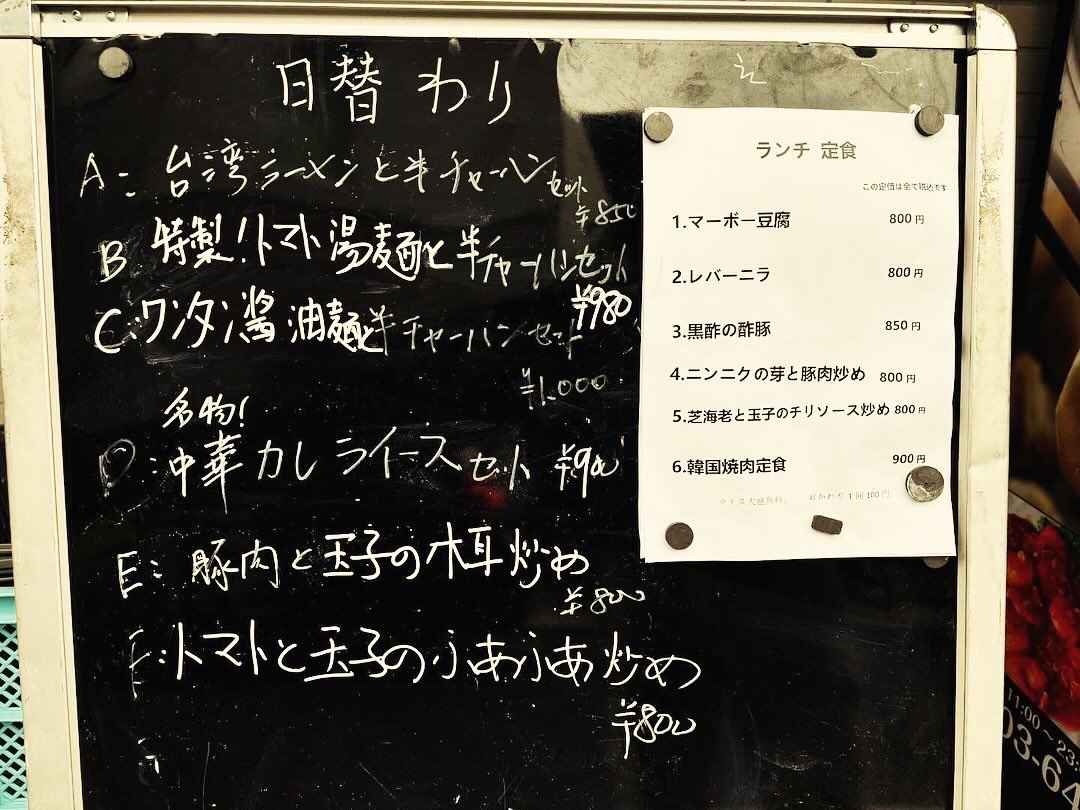 日替わり
A: 台湾ラーメンと半チャーハンセット
¥850
B 特製!トマト湯麺と半チャーハンセット
¥980
C:ワンタン醤油麺と半チャーハンセット
¥1.000
名物!
D:中華カレライースセット ¥900
E: 豚肉と玉子の木耳炒め
¥800
F:トマトと玉子のふあふあ炒め
¥800
ランチ 定食
この定価は全て税込です
1.マーボー豆腐 800円
2.レバーニラ 800円
3.黒酢の酢豚 850円
4.ニンニクの芽と豚肉炒め 800円
5.芝海老と玉子のチリソース炒め 800円
6.韓国焼肉定食 900円
ライス大盛無料、 おかわり1回100円
11:00～23:
03-64